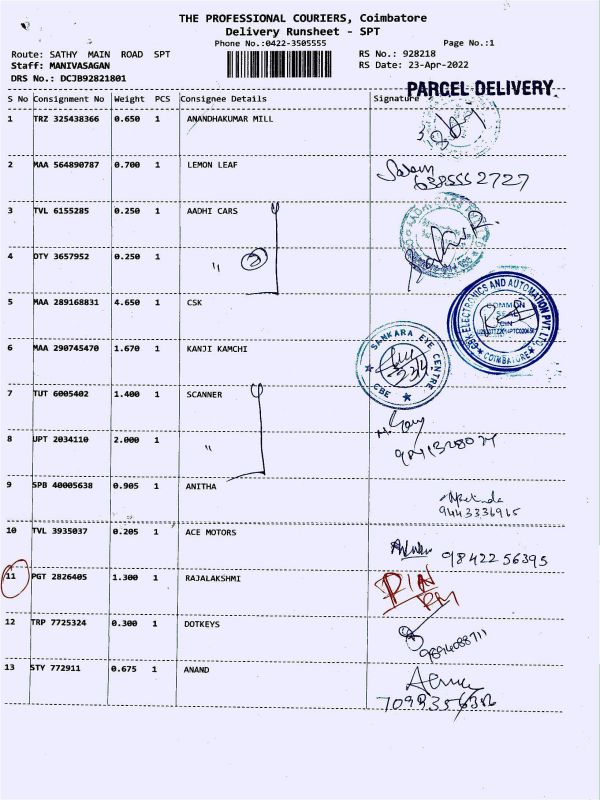 THE PROFESSIONAL COURIERS, Coimbatore
Delivery Runsheet - SPT
Phone No.:0422-3505555 Page No.:1
Route: SATHY MAIN ROAD SPT RS No.: 928218
Staff: MANIVASAGAN RS Date: 23-Apr-2022
DRS No.: DCJB92821801
PARCEL DELIVERY
S No Consignment No Weight PCS Consignee Details Signature
1 TRZ 325438366 0.650 1 ANANDHAKUMAR MILL
2 MAA 564890787 0.700 1 LEMON LEAF
3 TVL 6155285 0.250 1 AADHI CARS
4 DTY 3657952 0.250 1 " 2
5 MAA 289168831 4.650 1 CSK
ELECTRONICS AND AUTOMATION PVT. LTD.
COMMON
SEAL
COIMBATORE
6 MAA 290745470 1.670 1 KANJI KAMCHI
SANKARA EYE CENTRE
CBE
7 TUT 6005402 1.400 1 SCANNER
8 UPT 2034110 2.000 1 "
9 SPB 40005638 0.905 1 ANITHA
9443336915
10 TVL 3935037 0.205 1 ACE MOTORS 98422 56395
11 PGT 2826405 1.300 1 RAJALAKSHMI
12 TRP 7725324 0.300 1 DOTKEYS
9894088711
13 STY 772911 0.675 1 ANAND